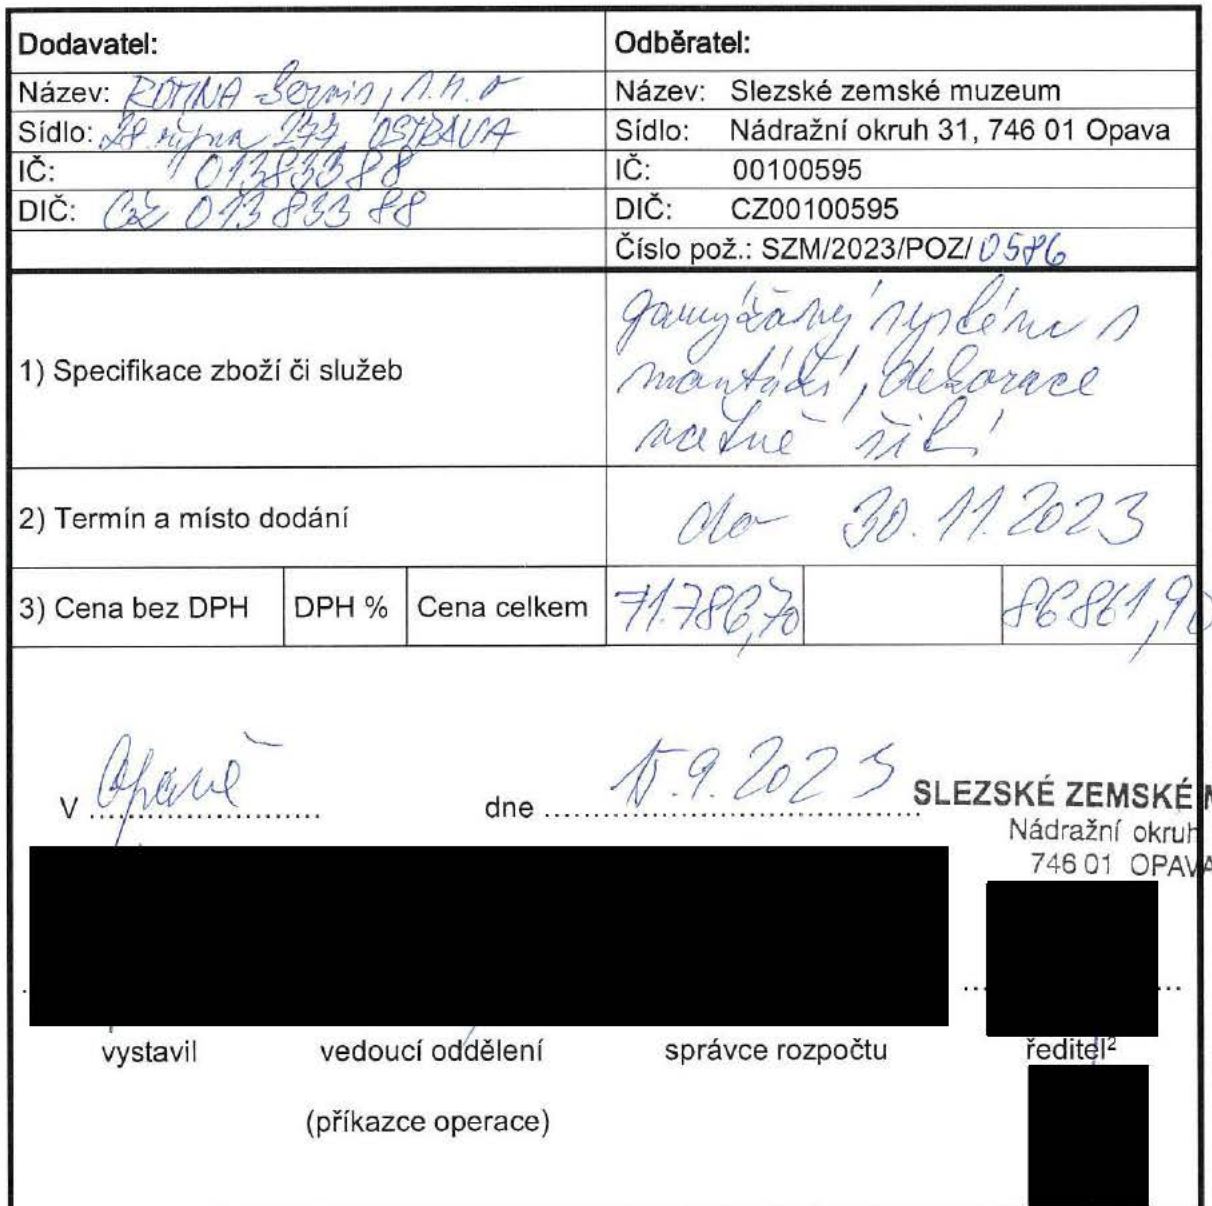 Dodavatel:
Odběratel:
Název: ROMNA Servis, s.r.o
Název: Slezské zemské muzeum
Sídlo: 28. října 277, OSTRAVA
Sídlo: Nádražní okruh 31, 746 01 Opava
IČ: 01383388
IČ: 00100595
DIČ: CZ 013 833 88
DIČ: CZ00100595
Číslo pož.: SZM/2023/POZ/ 0586
1) Specifikace zboží či služeb
garnýžový systém s
montáží, dekorace
včetně šití
2) Termín a místo dodání
do 30.11.2023
3) Cena bez DPH DPH % Cena celkem 71.786,70 86861,90
V Opavě dne 15.9.2023
SLEZSKÉ ZEMSKÉ
Nádražní okruh
746 01 OPAVA
vystavil vedoucí oddělení správce rozpočtu ředitel²
(příkazce operace)